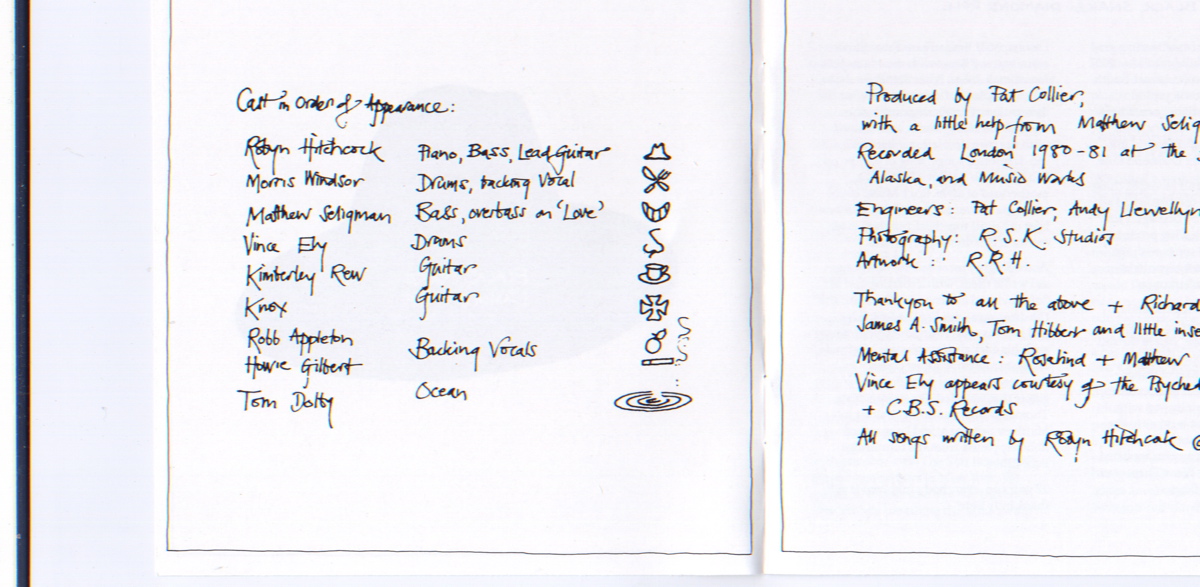 Cast in Order of Appearance:
Robyn Hitchcock Piano, Bass, Lead Guitar
Morris Windsor Drums, backing Vocal
Matthew Seligman Bass, overbass on 'Love'
Vince Ely Drums
Kimberley Rew Guitar
Knox Guitar
Robb Appleton
Howie Gilbert Backing Vocals
Tom Dolby Ocean
Produced by Pat Collier,
with a little help from Matthew Selig
Recorded London 1980-81 at the
Alaska, and Music Works
Engineers: Pat Collier, Andy Llewellyn
Photography: R.S.K. Studios
Artwork: R.R.H.
Thankyou to all the above + Richard
James A. Smith, Tom Hibbert and little inse
Mental Assistance: Rosalind + Matthew
Vince Ely appears courtesy of the Psyched
+ C.B.S. Records
All songs written by Robyn Hitchcock